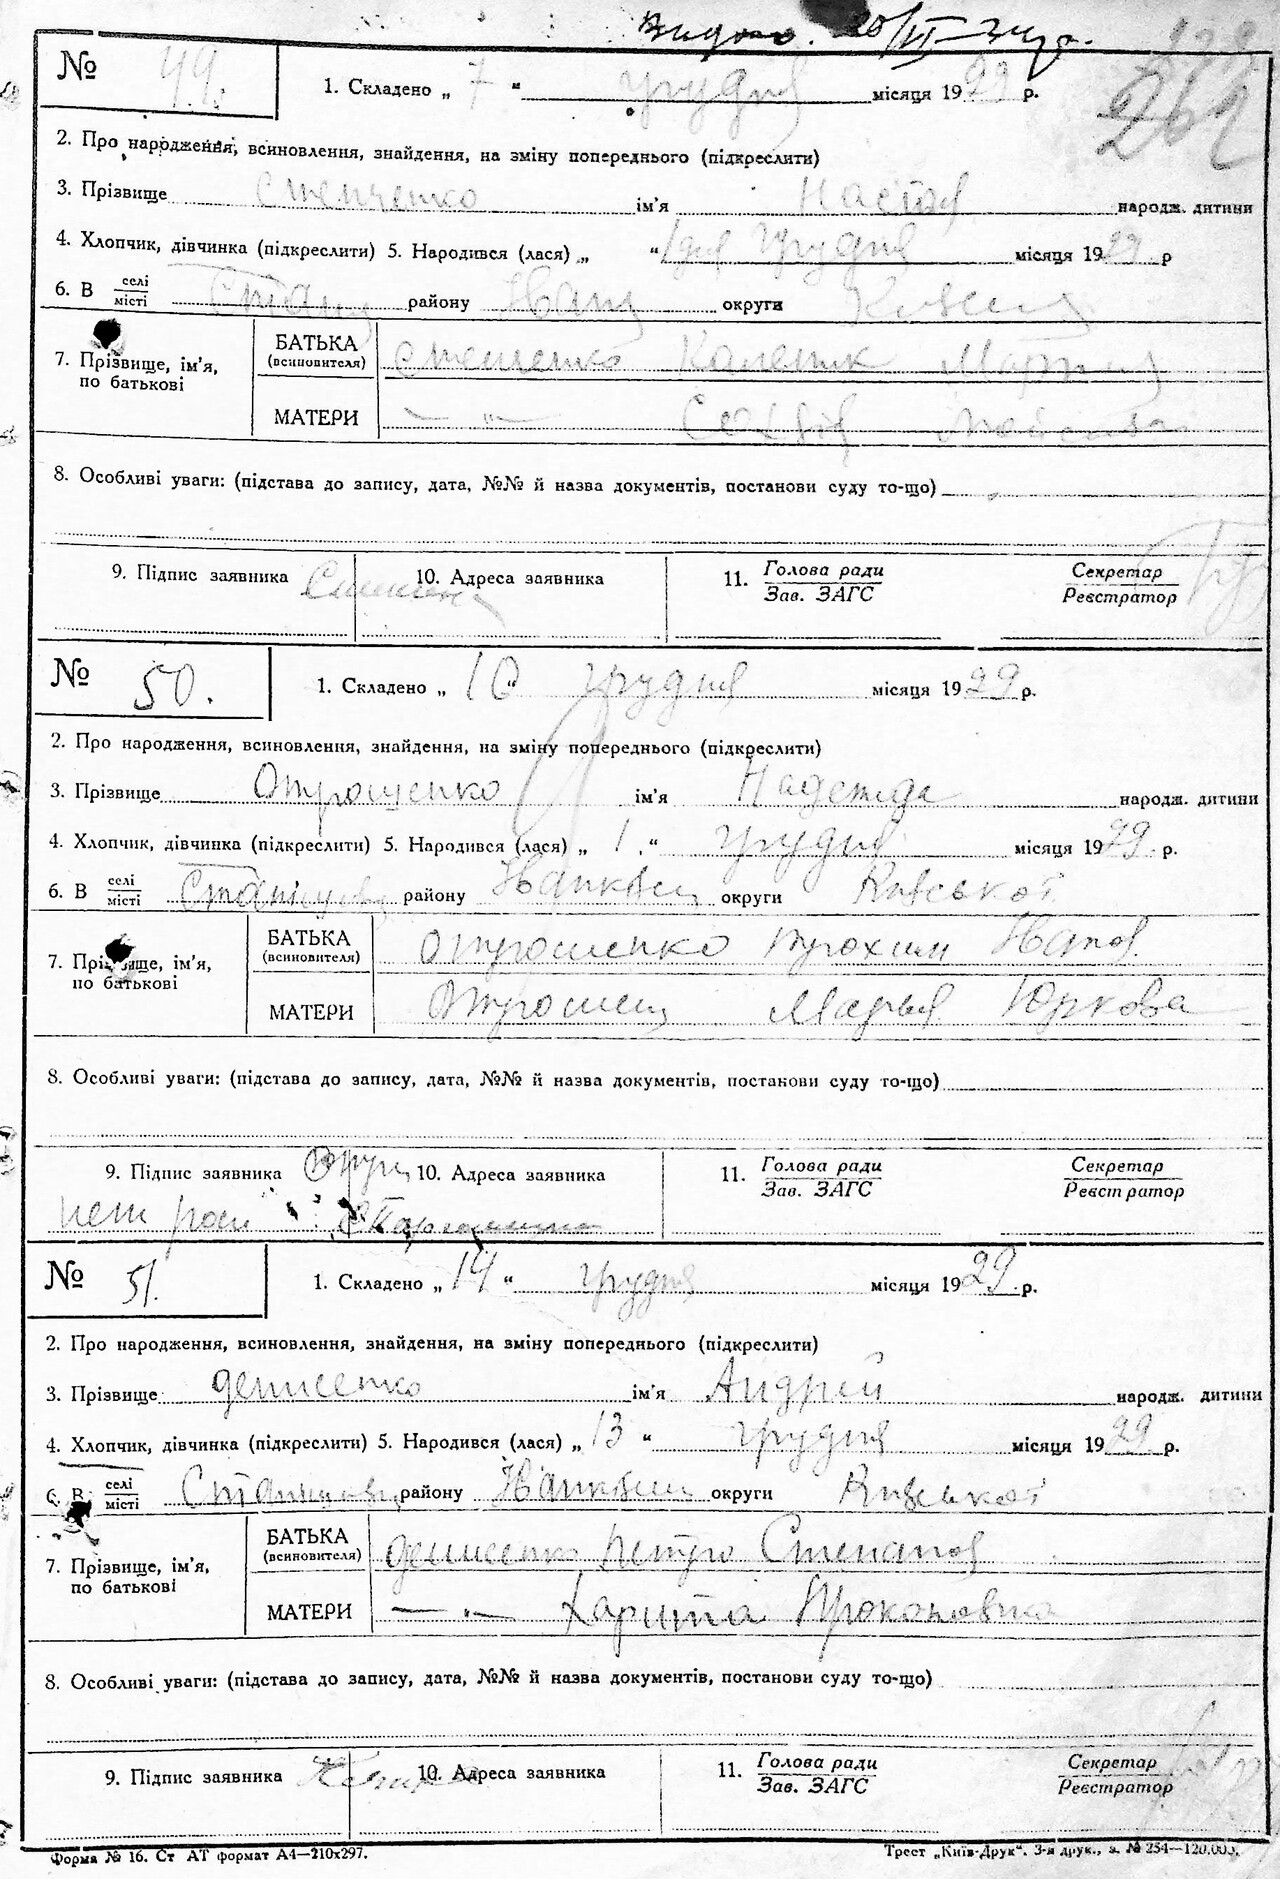 Видано. 20/VI–34р.
№ 49. 1. Складено „ 7 “ грудня місяця 1929 р. 262
2. Про народження, всиновлення, знайдення, на зміну попереднього (підкреслити)
3. Прізвище Степченко ім'я Настя народж. дитини
4. Хлопчик, дівчинка (підкреслити) 5. Народився (лася) „ “ 1 дня грудня місяця 1929 р
6. В селі/місті Стани району Иван округи
7. Прізвище, ім'я, по батькові
БАТЬКА (всиновителя)
МАТЕРИ — „ —
8. Особливі уваги: (підстава до запису, дата, №№ й назва документів, постанови суду то-що)
9. Підпис заявника 10. Адреса заявника 11. Голова ради/Зав. ЗАГС Секретар/Реєстратор
№ 50. 1. Складено „ 10 “ грудня місяця 1929 р.
2. Про народження, всиновлення, знайдення, на зміну попереднього (підкреслити)
3. Прізвище Отрощенко ім'я Надежда народж. дитини
4. Хлопчик, дівчинка (підкреслити) 5. Народився (лася) „ 1 “ грудня місяця 1929 р.
6. В селі/місті району Иванківськ округи Київської
7. Прізвище, ім'я, по батькові
БАТЬКА (всиновителя) Отрошенко Трохим Иванов
МАТЕРИ Отрошен Марья Юркова
8. Особливі уваги: (підстава до запису, дата, №№ й назва документів, постанови суду то-що)
9. Підпис заявника 10. Адреса заявника 11. Голова ради/Зав. ЗАГС Секретар/Реєстратор
№ 51. 1. Складено „ 14 “ грудня місяця 1929 р.
2. Про народження, всиновлення, знайдення, на зміну попереднього (підкреслити)
3. Прізвище Денисенко ім'я Андрій народж. дитини
4. Хлопчик, дівчинка (підкреслити) 5. Народився (лася) „ 13 “ грудня місяця 1929 р.
6. В селі/місті району Иванківськ округи Київської
7. Прізвище, ім'я, по батькові
БАТЬКА (всиновителя) Денисенко Петро Степанов
МАТЕРИ — „ — Харитя Прокоповна
8. Особливі уваги: (підстава до запису, дата, №№ й назва документів, постанови суду то-що)
9. Підпис заявника 10. Адреса заявника 11. Голова ради/Зав. ЗАГС Секретар/Реєстратор
Форма № 16. Ст АТ формат А4—210х297. Трест „Київ-Друк“. 3-я друк., з. № 254—120.000.